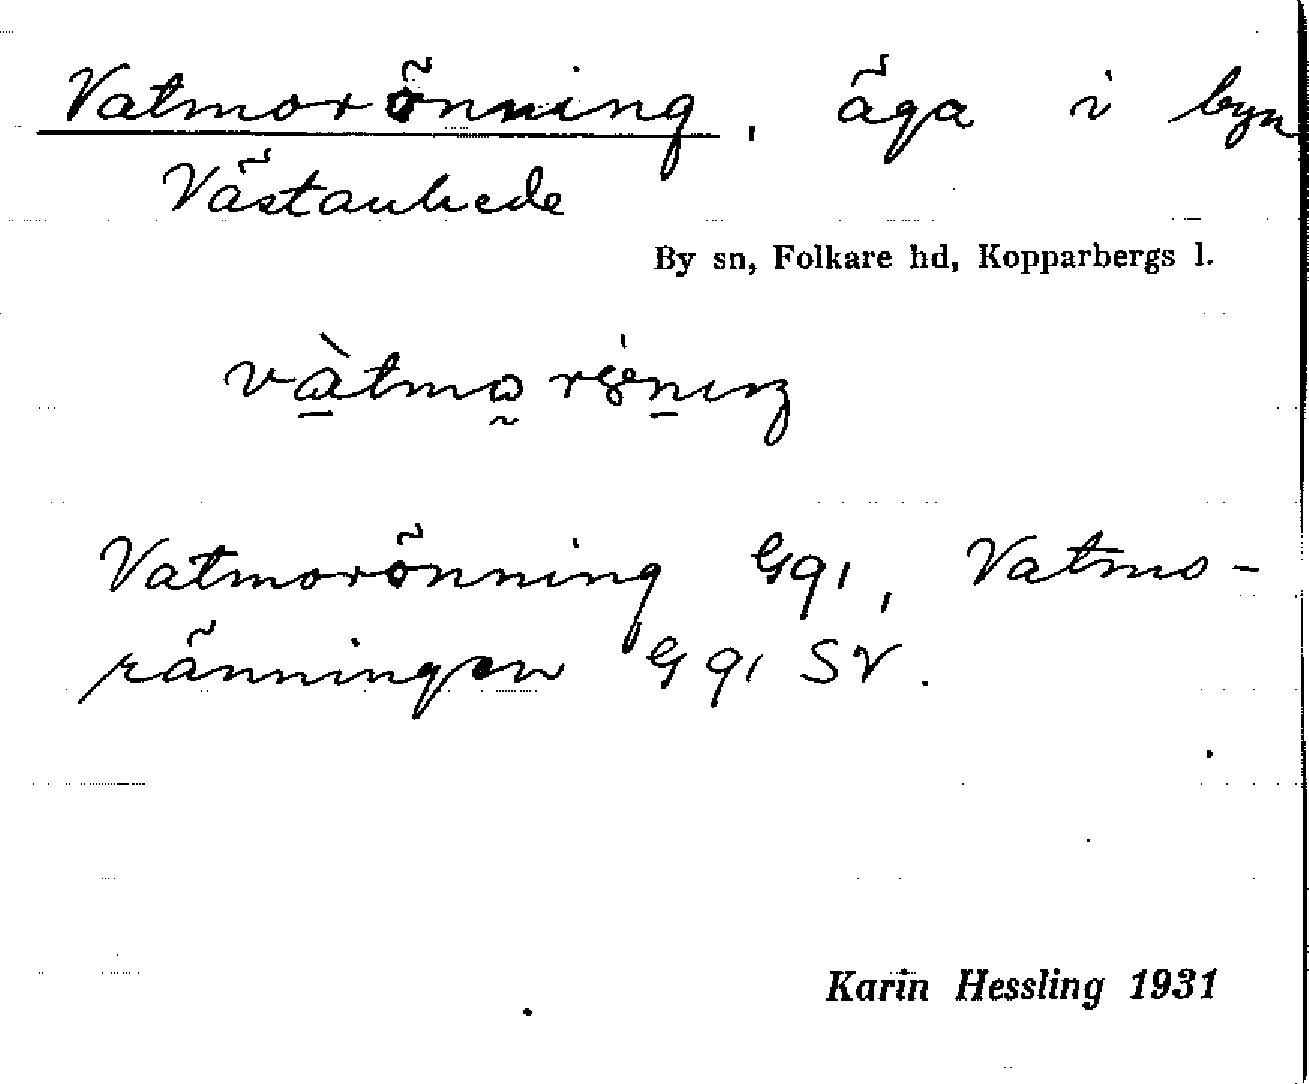 Vatmorönning, äga i byn
Västanhede
By sn, Folkare hd, Kopparbergs l.
Vatmorönning Gg 1, Vatmo-
ränningen Gg 1 SV.
Karin Hessling 1931